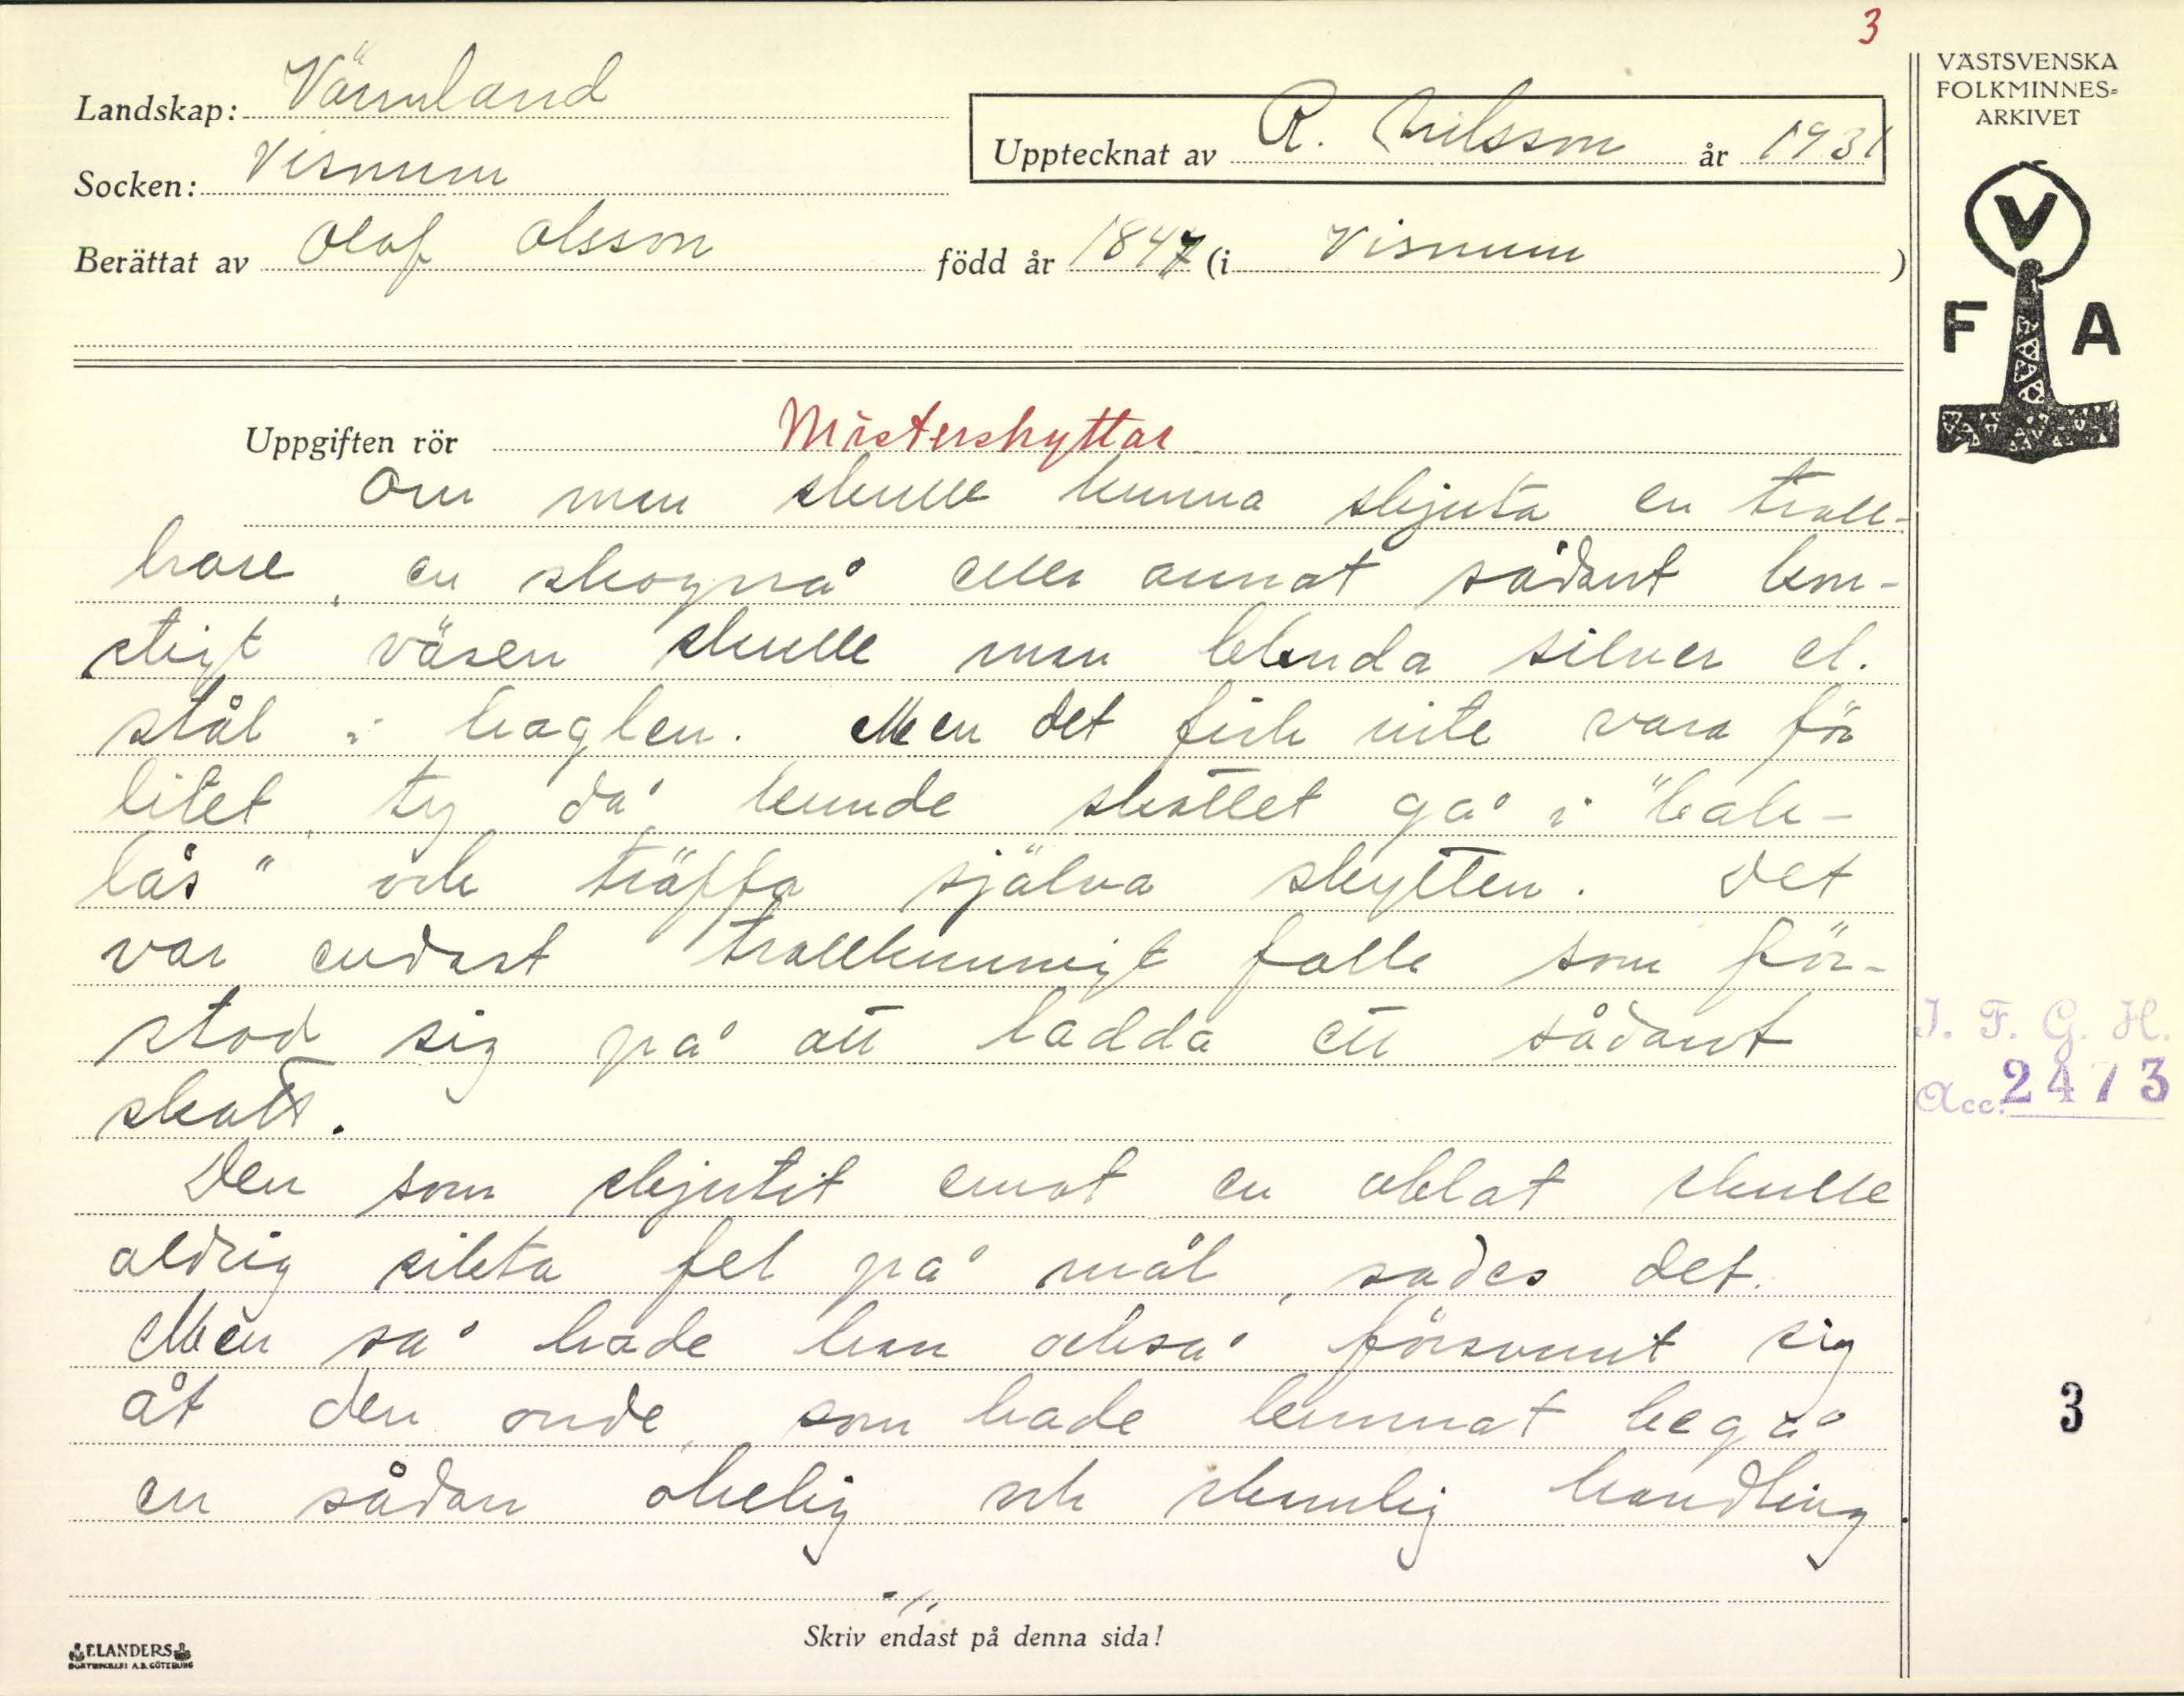 3
VÄSTSVENSKA
FOLKMINNES-
ARKIVET
Landskap: Värmland
Upptecknat av R. Nilsson år 1931
Socken: Visnum
Berättat av Olof Olsson född år 1847 (i Visnum)
V
F A
Uppgiften rör Mästerskyttar.
Om man skulle kunna skjuta en troll-
hare, en skogsrå eller annat sådant kon-
stigt väsen skulle man blanda silver el.
stål i haglen. Men det fick inte vara för
litet, ty då kunde skottet gå i "bak-
lås" och träffa själva skytten. Det
var endast trollkunnigt folk som för-
stod sig på att ladda ett sådant
skott.
Den som skjutit emot en oblat skulle
aldrig sikta fel på mål, sades det.
Men så hade han också försvurit sig
åt den onde, som hade kunnat begå
en sådan ohelig och skamlig handling.
J. F. G. H.
Acc. 2473
3
Skriv endast på denna sida!
ELANDERS
BOKTRYCKERI A.B. GÖTEBORG